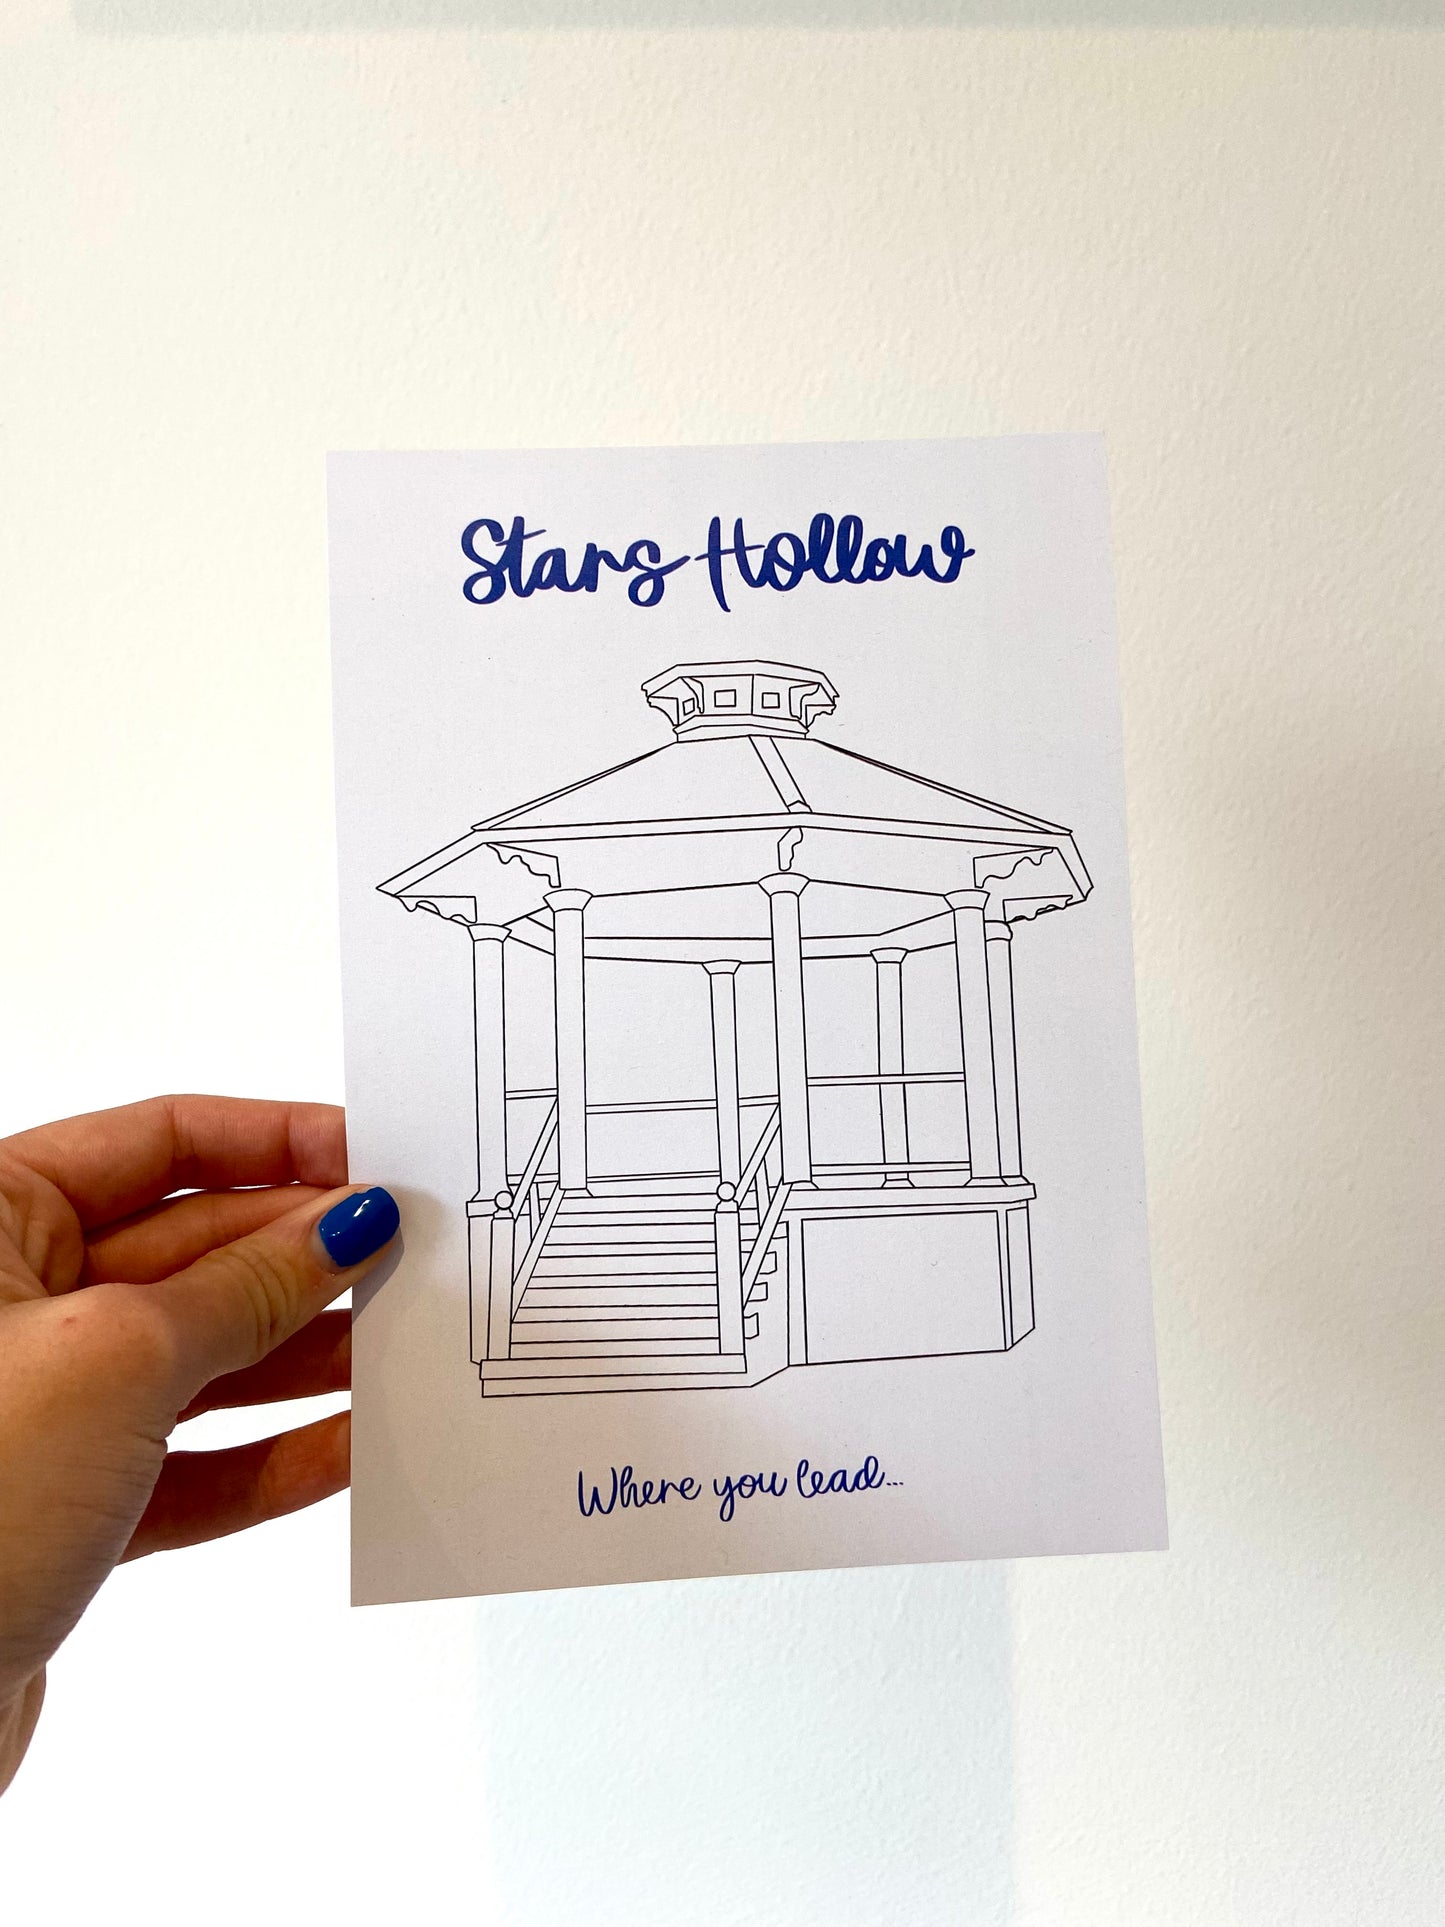 Stars Hollow
Where you lead...